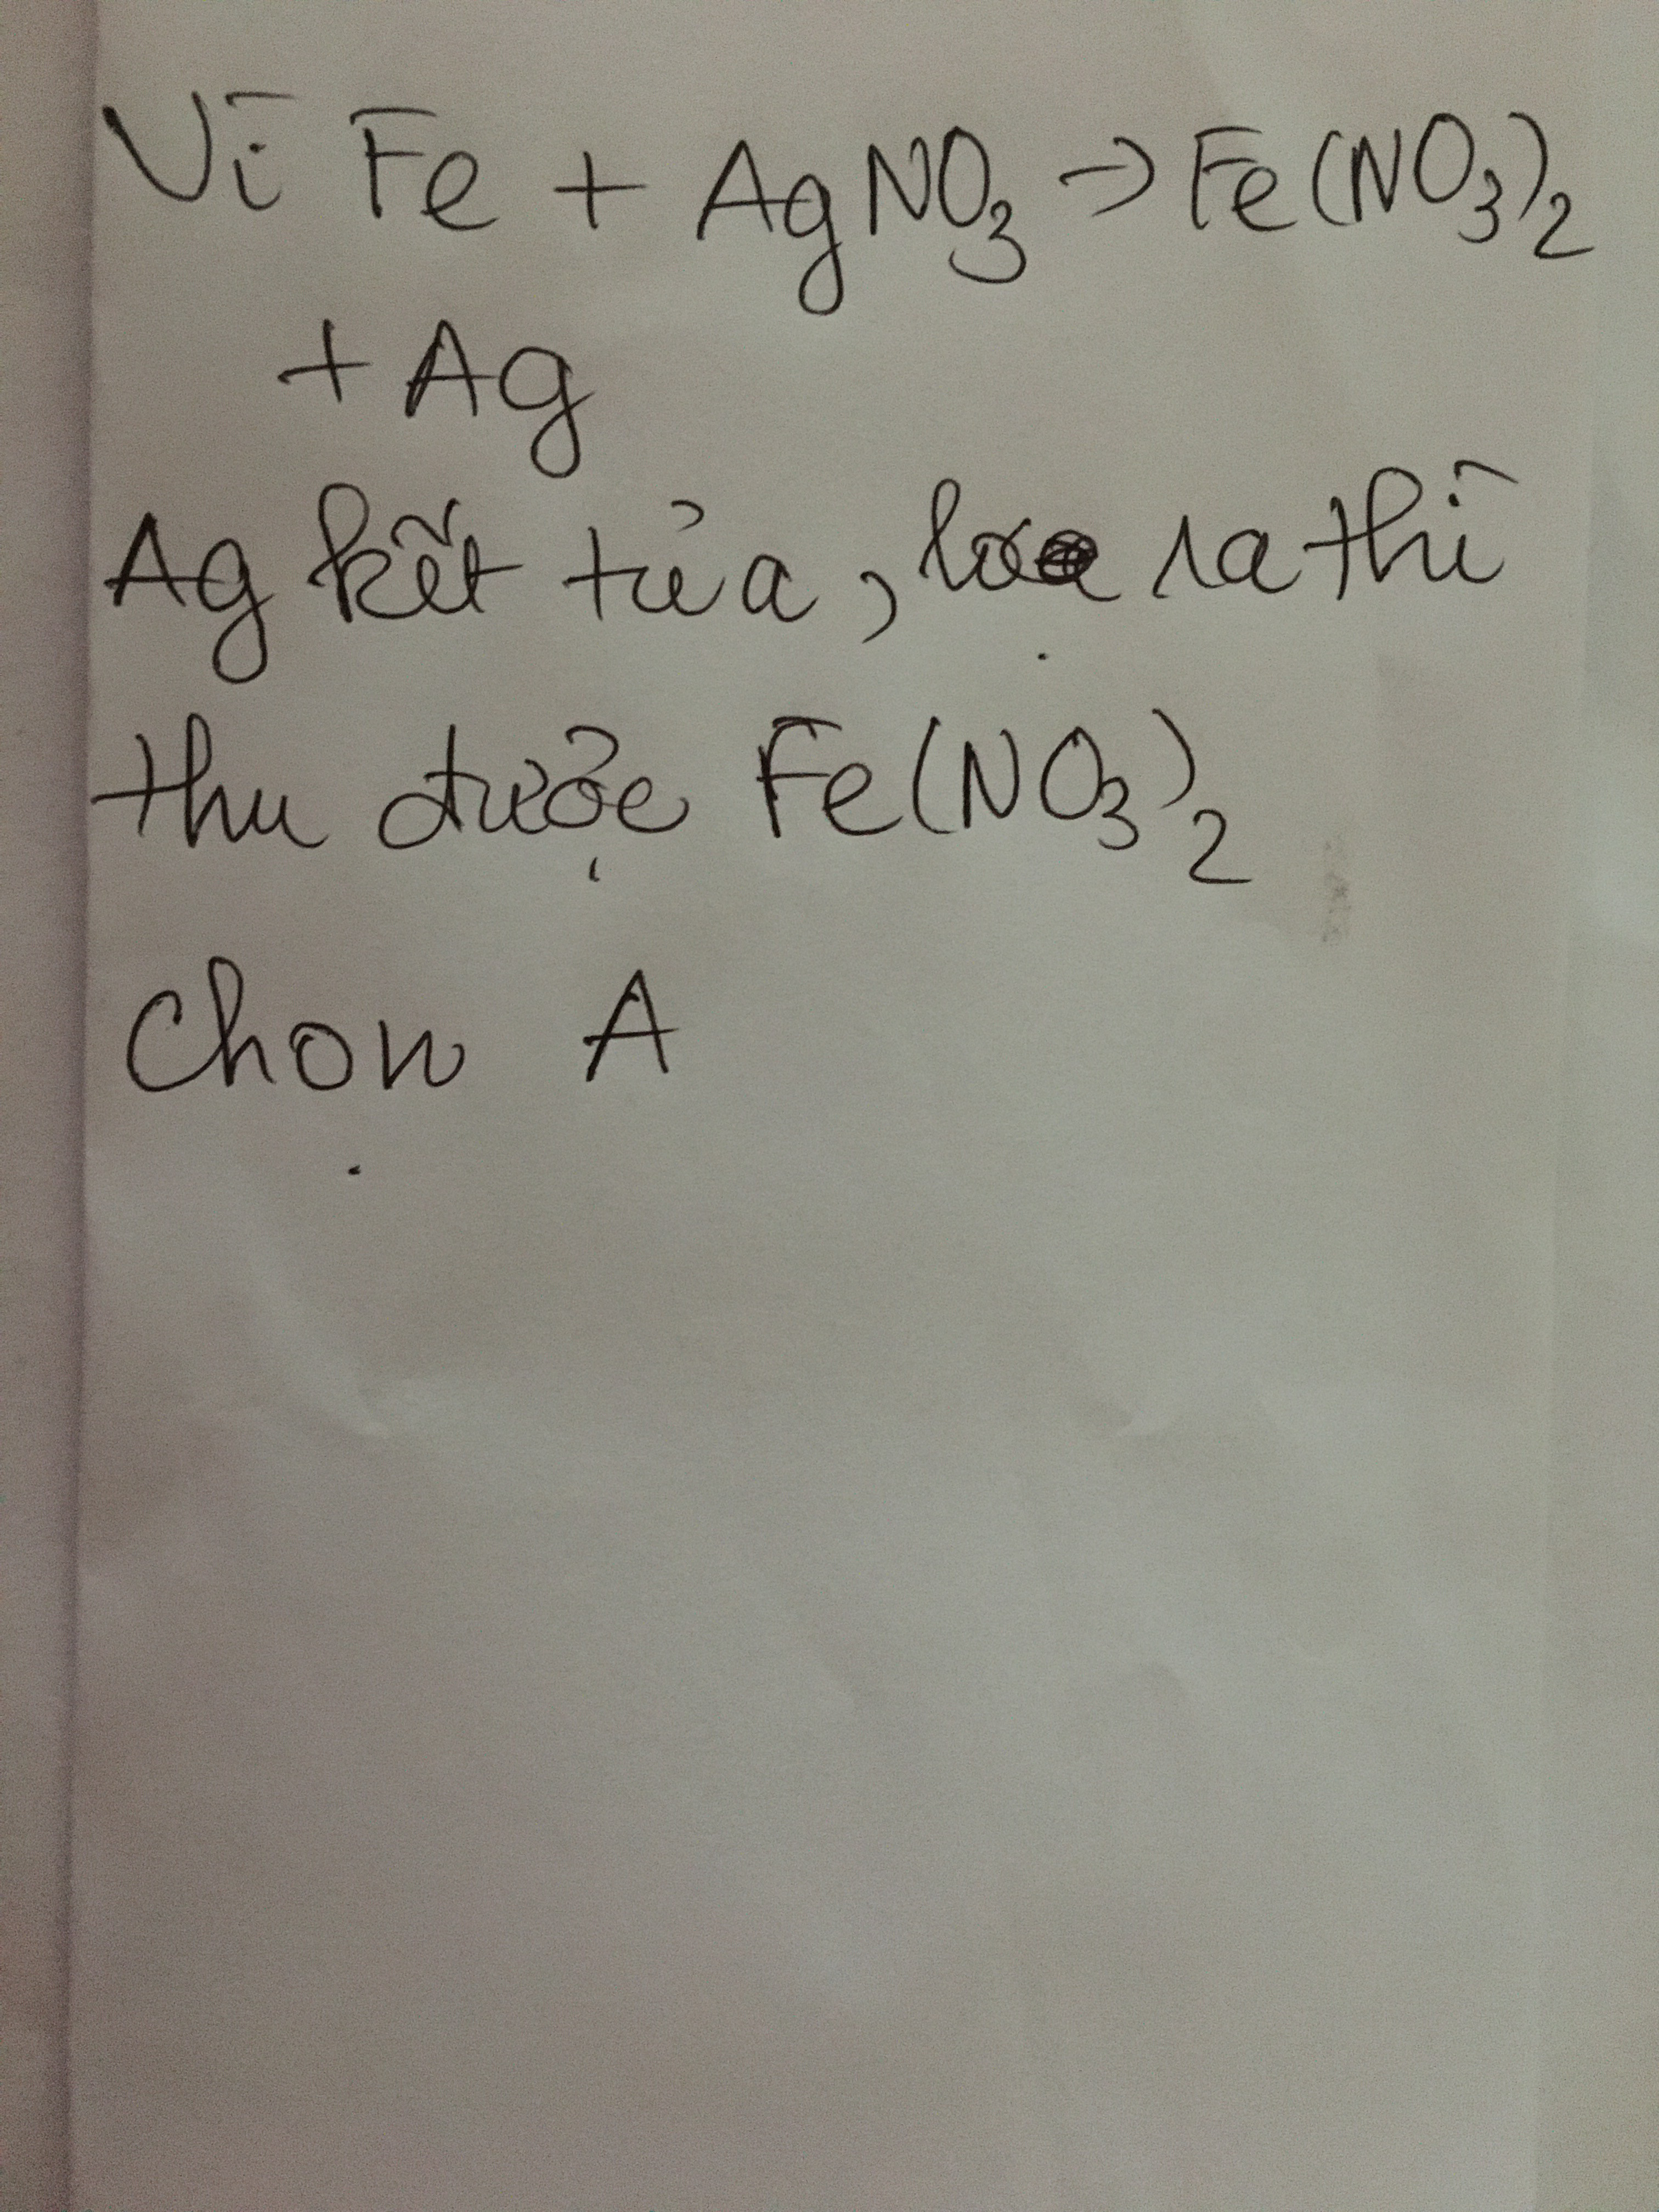 Vì Fe + AgNO₃ → Fe(NO₃)₂
+ Ag
Ag kết tủa, lọc ra thì
thu được Fe(NO₃)₂
Chọn A